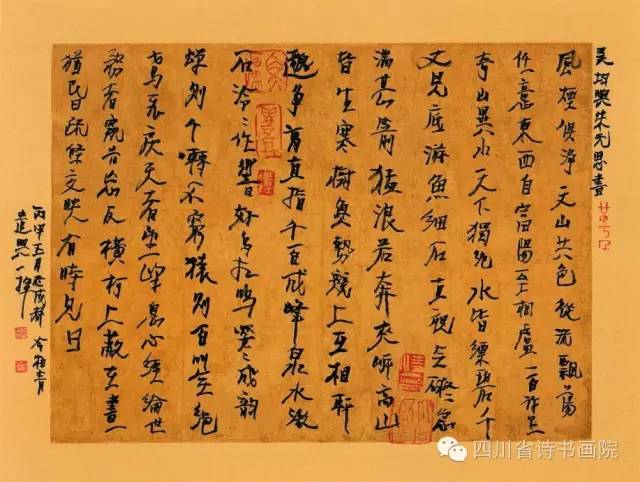 吴均與朱元思書
風煙俱淨天山共色從流飄蕩
任意東西自富陽至桐廬一百許里
奇山異水天下獨絕水皆縹碧千
丈見底游魚細石直視無礙急
湍甚箭猛浪若奔夾岸高山
皆生寒樹負勢競上互相軒
邈爭高直指千百成峰泉水激
石泠々作響好鳥相鳴嚶々成韻
蟬則千囀不窮猿則百叫無絕
鳶飛戾天者望峰息心經綸世
務者窺谷忘反橫柯上蔽在晝
猶昏疏條交映有時見日
丙申五月於成都 冷柏青
一揮
四川省诗书画院